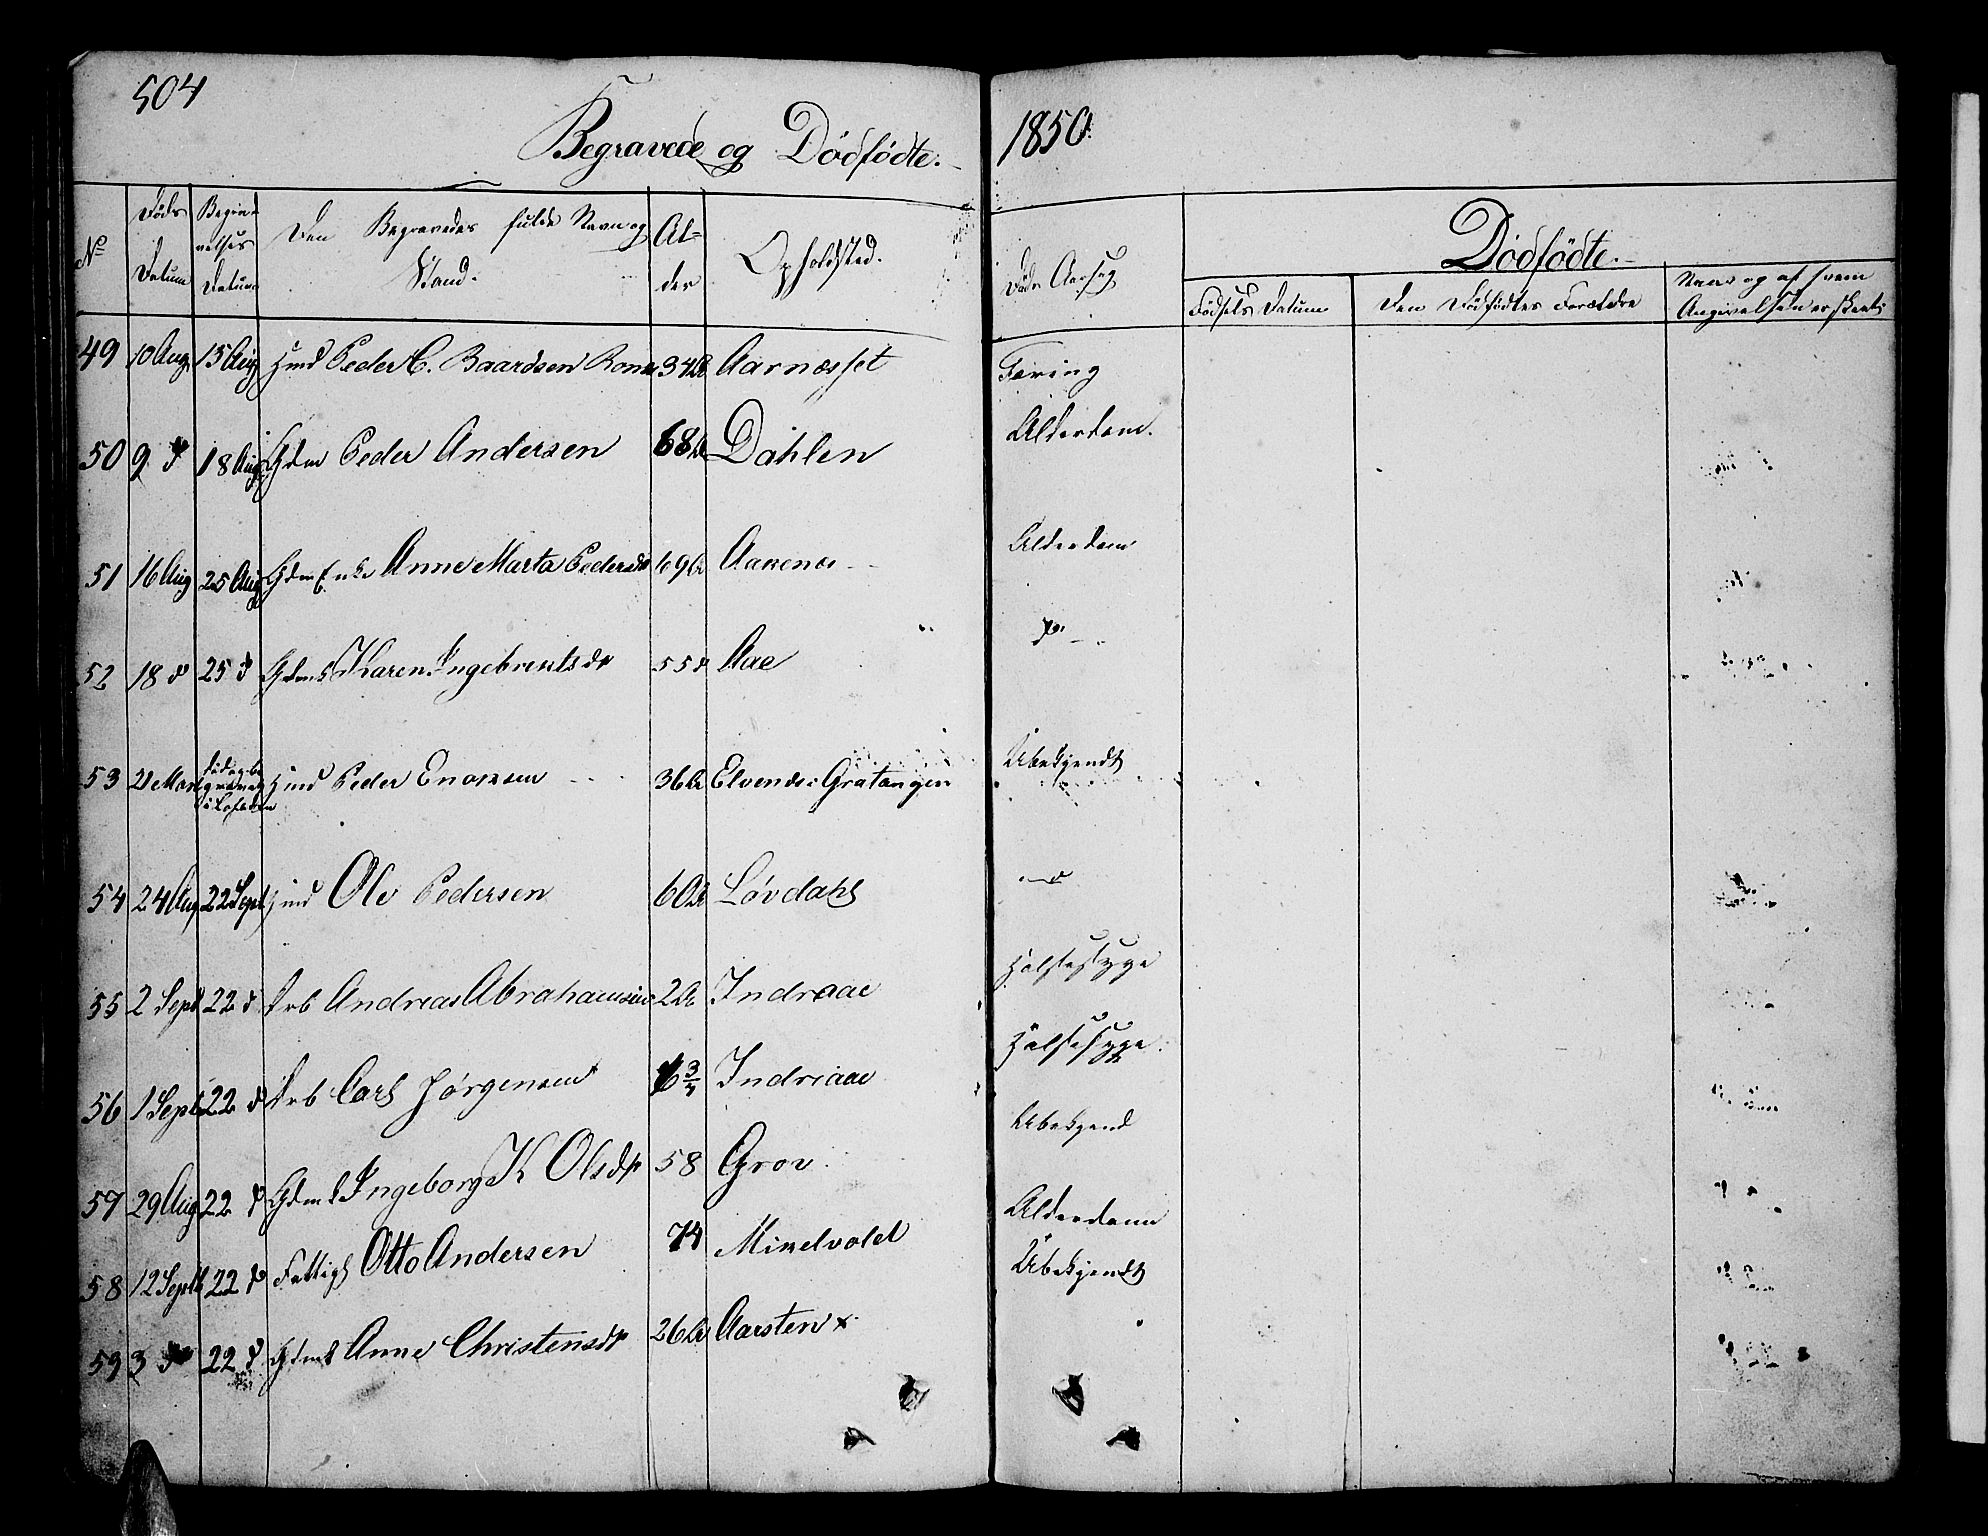 504
Begravede og Dødfødte.
1850.
No
Døds Datum
Begravelses Datum
Den Begravedes fulde Navn og Stand.
Alder
Opholdsted.
Døds Aarsag
Dødfødte.
Fødsels Datum
Den Dødfødtes Forældre
Naar og af hvem Angivelsen er skeet.
49 10 Aug 15 Aug Peder C. Baardsen 34 Aar Aarnæsset
50 9 d 18 Aug Gdm Peder Andersen 68 Dahlen Alderdom.
51 16 Aug 25 Aug Gdm Enke Anne Marta Pedersdr 69 Alderdom
52 18 d 25 d Gdmk Karen Ingebrentsdr 55 d Aae d
53 21 Mar begravet i Lofoden Peder Enoksen 36 Gratangen Ubekjendt
54 24 Aug 22 Sept Ole Pedersen 60 Løvdahl d
55 2 Sept 22 d Drb Andreas Abrahamsen 2 Indraae Halsesyge
56 1 Sept 22 d Drb Carl Jørgensen 3/4 Indreaae Halsesyge.
57 29 Aug 22 d Gdmk Ingeborg K Olsdr 58 Grov Ubekjend
58 12 Septb 22 d Fattigl Otto Andersen 74 Alderdom
59 3 d 22 d Gdmk Anne Christensdr 26 Aarsten x Ubekjendt